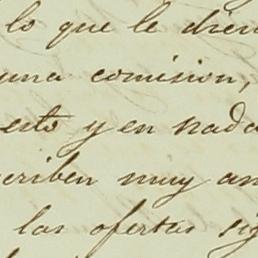 lo que le dien
una comision,
esto y en nada
criben muy am
las ofertas sig